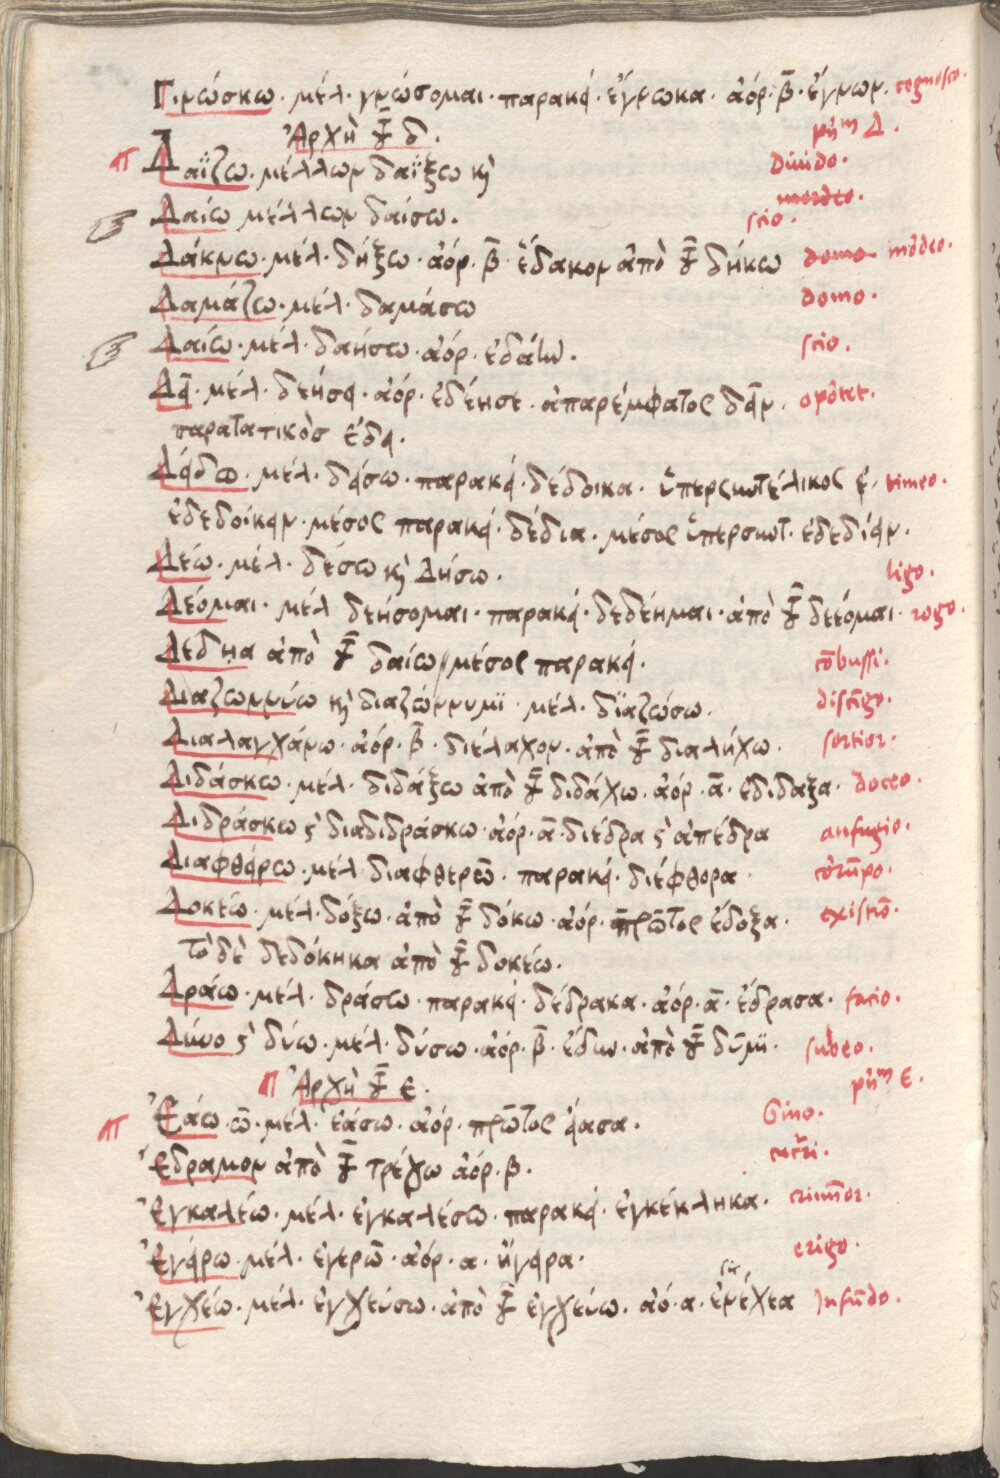 Γινώσκω · μέλ · γνώσομαι · παρακεί · ἔγνωκα · ἀόρ · β̄ · ἔγνων · cognosco ·
Ἀρχὴ τοῦ δ · pn̄m Δ ·
Δαΐζω · μέλλων δαΐξω κὶ diuido ·
mordeo ·
Δαίω μέλλων δαίσω · scio ·
Δάκνω · μέλ · δήξω · ἀόρ · β̄ · ἔδακον ἀπὸ τοῦ δήκω domo mōdeo ·
Δαμάζω · μέλ · δαμάσω domo ·
Δαίω · μέλ · δαήσω · ἀόρ · scio ·
Δεῖ · μέλ · δεήσει · ἀόρ · ἐδέησε · ἀπαρέμφατος δεῖν · opōtet ·
παρατατικὸσ ἔδει ·
Δείδω · μέλ · δείσω · παρακεί · δέδοικα · ὑπερσυντέλικος ἐ · timeo ·
ἐδεδοίκειν · μέσος παρακεί · δέδια · μέσος ὑπερσυντ · ἐδεδίειν ·
Δέω · μέλ · δέσω κὶ Δήσω · ligo ·
Δέομαι · μέλ δεήσομαι · παρακεί · δεδέημαι · ἀπὸ τοῦ δεέομαι · rogo ·
Δέδηα ἀπὸ τοῦ δαίω / μέσος παρακεί · cōbussi ·
Διαζωννύω κὶ διαζώννυμϊ · μέλ · δϊαζώσω · discīgo ·
Διαλαγχάνω · ἀόρ · β̄ · διέλαχον · ἀπὸ τοῦ διαλήχω · sortior ·
Διδάσκω · μέλ · διδάξω ἀπὸ τοῦ διδάχω · ἀόρ · ᾱ · ἐδιδαξα · doceo ·
Διδράσκω ς̀ διαδιδράσκω · ἀόρ · ᾱ · διέδρα ς̀ ἀπέδρα aufugio ·
Διαφθείρω · μέλ · διαφθερῶ · παρακεί · διέφθορα · corūpo ·
Δοκέω · μέλ · δόξω · ἀπὸ τοῦ δόκω · ἀόρ · πρῶτος ἔδοξα · existiō ·
τὸ δὲ δεδόκηκα ἀπὸ τοῦ δοκέω ·
Δράω · μέλ · δράσω · παρακεί · δέδρακα · ἀόρ · ᾱ · ἔδρασα · facio ·
Δύνο ς̀ δύω · μέλ · δύσω · ἀόρ · β̄ · ἔδυν · ἀπὸ τοῦ δῦμϊ · subeo ·
Ἀρχὴ τοῦ ε · pn̄m ε ·
Ἐάω · ῶ · μέλ · ἐάσω · ἀόρ · πρῶτος εἴασα · Sino ·
Ἔδραμον ἀπὸ τοῦ τρέχω ἀόρ · β ·
Ἐγκαλέω · μέλ · ἐγκαλέσω · παρακεί · ἐγκέκληκα · crimīor ·
Ἐγείρω · μέλ · ἐγερῶ · ἀόρ · α · ἤγειρα · erigo ·
Ἐγχέω · μέλ · ἐγχεύσω · ἀπὸ τοῦ ἐγχεύω · ἀό · α · ἐνέχεα Infūdo ·